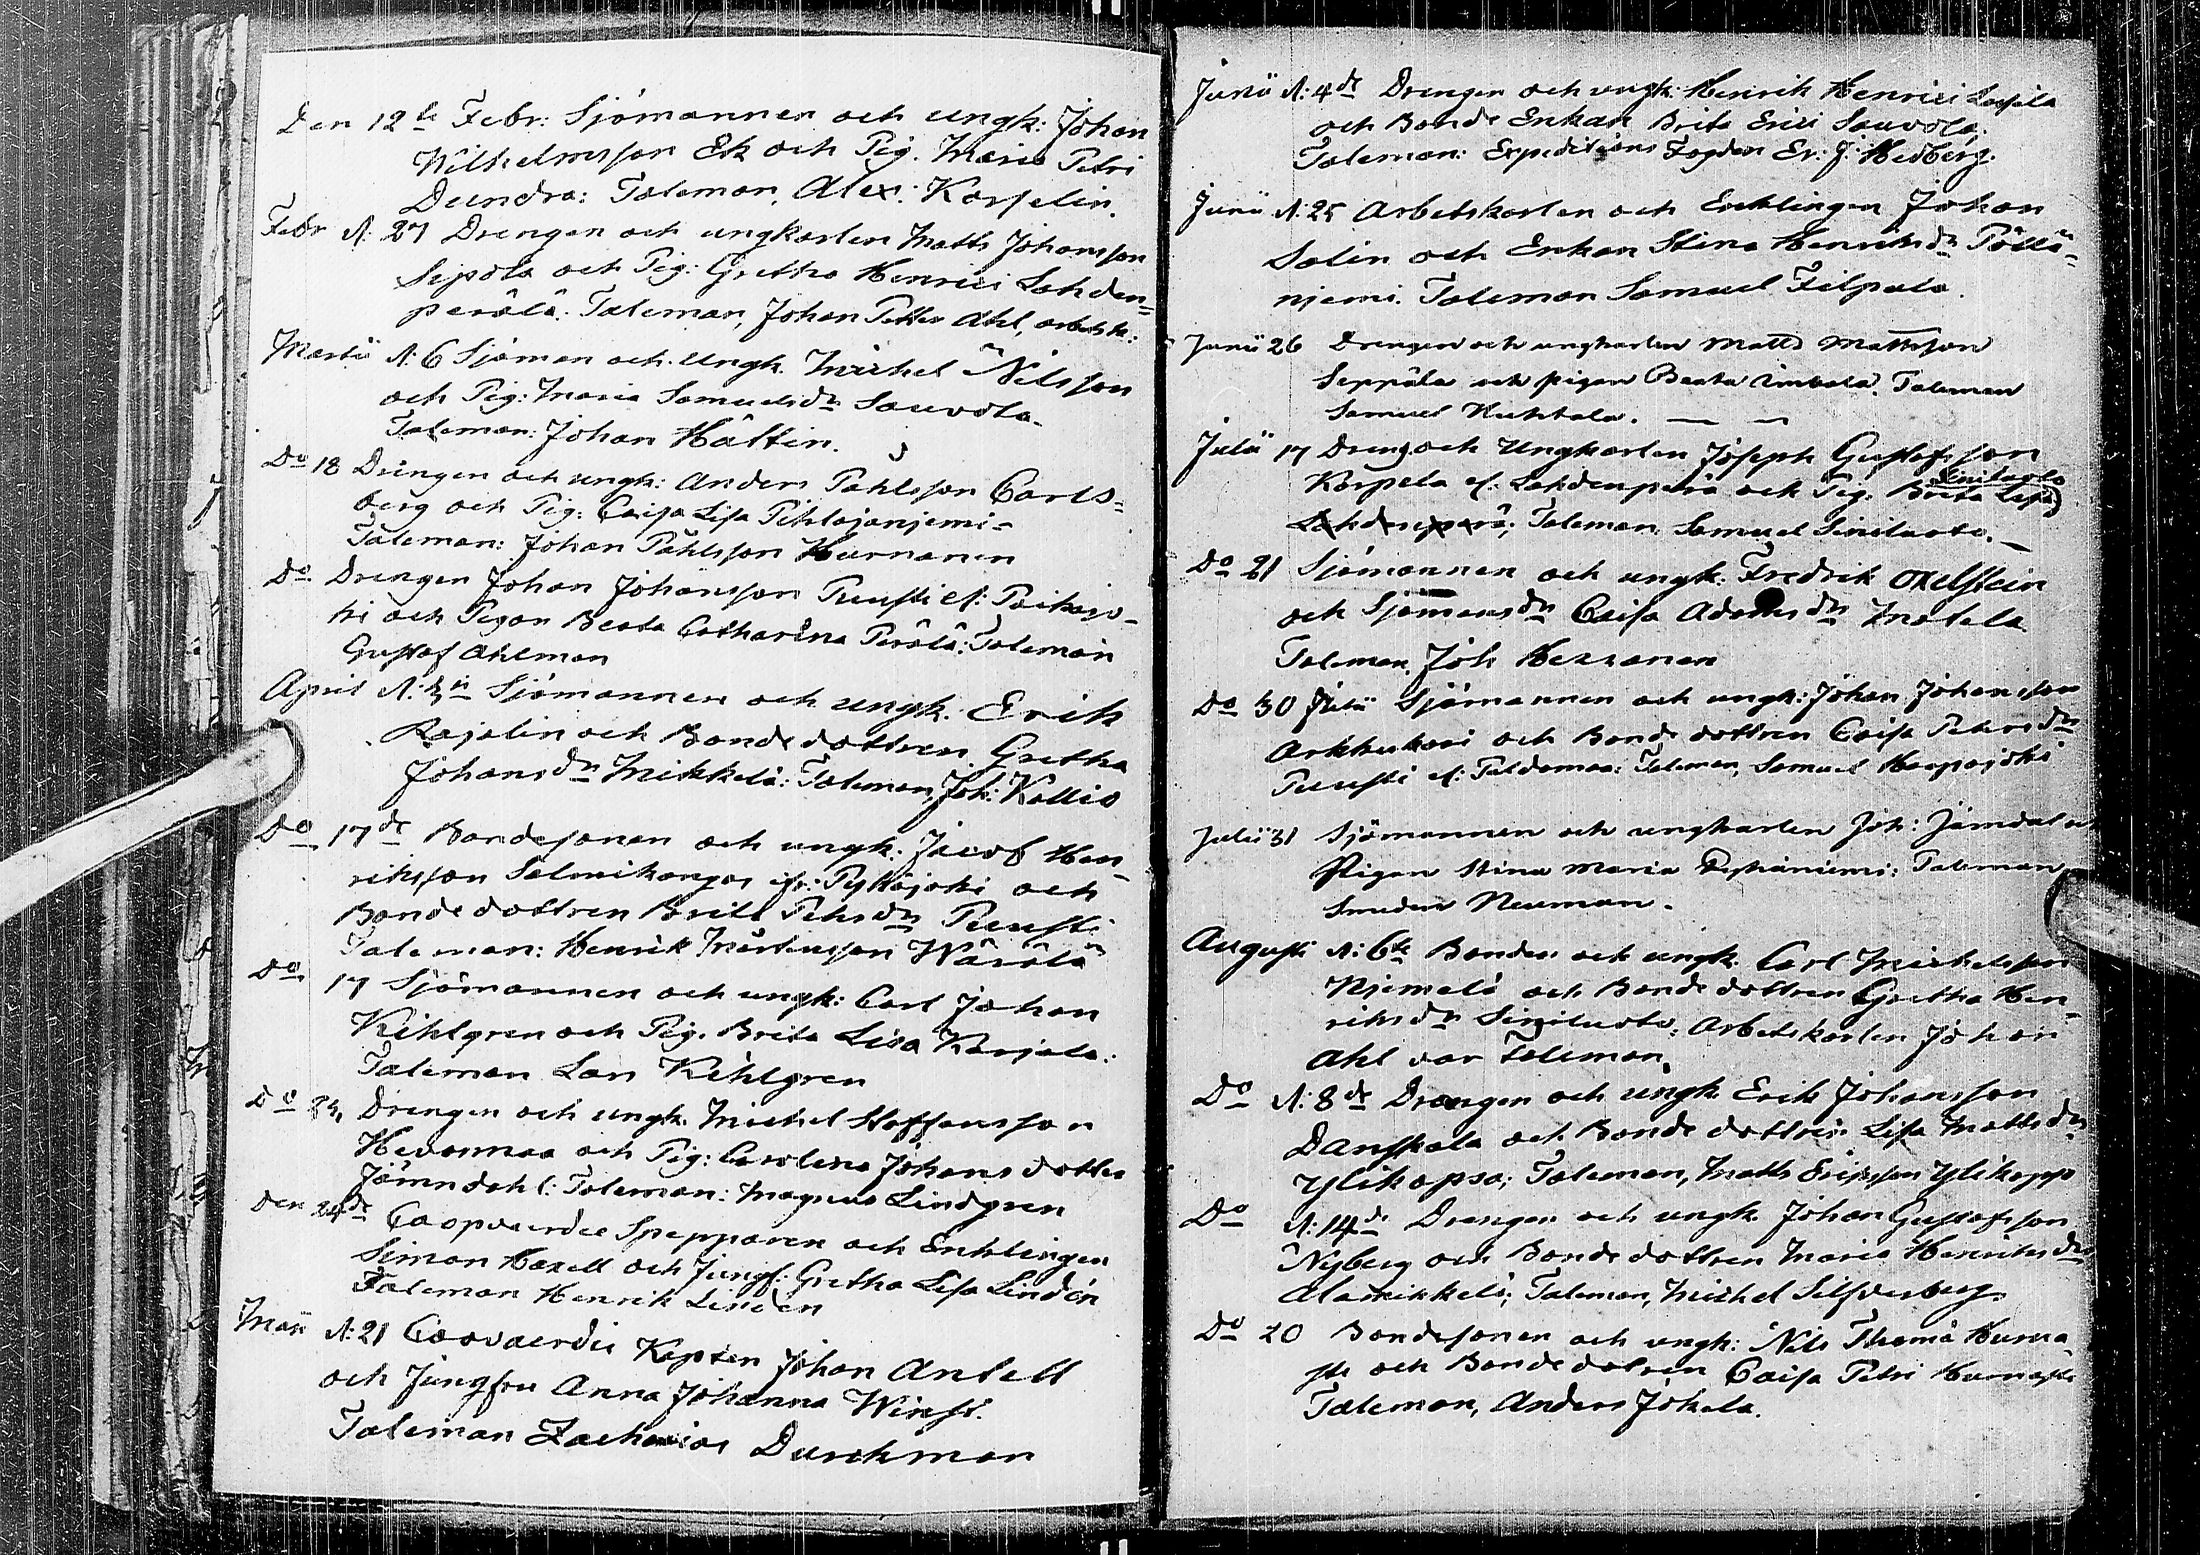 Den 12te Febr: Sjömannen och ungk: Johan
Wilhelmsson Ek och Pig. Maria Petri
Dundra: Taleman, Alex: Karselin.
Febr d: 27 Drengen och ungkarlen Matts Johansson
Sipola och Pig: Gretha Henrici Lahden=
perälä: Taleman, Johan Petter Ahl, arbetsk:
Martii d: 6 Sjöman och Ungk. Michel Nilsson
och Pig: Maria Samuelsdr Sauvola.
Taleman: Johan Hättin.
Do 18 Drängen och ungk: Anders Pahlsson Carls=
berg och Pig: Caisa Lisa Pihlajanjemi-
Taleman: Johan Påhlsson Hurnanen
Do Drengen Johan Johansson Ruusti el: Paikaso-
ki och Pigan Beata Catharina Perälä: Taleman
Gustaf Ahlman
April d: Sjömannen och ungk. Erik
Rajalin och Bondedottren Gretha
Johansdr Mikkelä: Taleman, Joh: Kallio
Do 17de Bondesonen och ungk. Jacob Hen-
riksson Salmikangas ifr: Pyhäjoki och
Bondedottren Brita Petersdr Ruusti
Taleman: Henrik Mårtensson Wärälä
Do 17 Sjömannen och ungk: Carl Johan
Kihlgren och Pig. Brita Lisa Karjala:
Taleman Lars Kihlgren
Do 24 Drengen och ungk. Michel Staffansson
Hevosmaa och Pig: Carolina Johansdotter
Jämndahl: Taleman: Magnus Lindgren
Den 24de Coopvaerdie Skepparen och Enklingen
Simon Haxell och Jungf: Gretha Lisa Lindén
Taleman Henrik Lindén
Maji d: 21 Coovaerdie Kapten Johan Antell
och Jungfru Anna Johanna Wirsi.
Taleman Zacharias Durchman
Junii d: 4de Drengen och ungk: Henrik Henrici Lassila
och Bonde Enkan Brita Erici Sauvola.
Taleman: Expeditions Fogden Er: J: Hedberg.
Junii d: 25 Arbetskarlen och Enklingen Johan
Salin och Enkan Stina Henriksdr Pöllä=
njemi. Taleman Samuel Filpula.
Junii 26 Drengen och ungkarlen Matts Mattsson
Seppälä och pigan Beata Timbala. Taleman
Samuel Huhtala.
Julii 17 Dreng och Ungkarlen Joseph Gustafsson
Korpela el: Lahdenperä och Pig: Brita Lisa Siniluoto
Lahdenperä; Taleman Samuel Siniluoto.
Do 21 Sjömannen och ungk. Fredrik Oxelstein
och Sjömansdr Caisa Adamsdr Matela
Taleman, Joh Herranen
Do 30 Julii Sjömannen och ungk: Johan Johansson
Arkkukari och Bondedottren Caisa Petersdr
Ruusti el: Paldamaa: Taleman, Samuel Haapajoki
Julii 31 Sjömannen och ungkarlen Joh: Jämdal o
Pigan Stina Maria Peskäniemi: Taleman
Smeden Neuman.
Augusti d: 6te Bonden och ungk. Carl Michelsson
Njemelä och Bondedottren Gretha Hen-
riksdr Siniluoto: Arbetskarlen Johan
Ahl var Taleman.
Do d: 8de Drengen och ungk. Erik Johansson
Danskala och Bondedottren Lisa Mattsdr
Ylikopsa; Taleman, Matts Ericsson Ylikopp
Do d: 14de Drengen och ungk. Johan Gustafsson
Nyberg och Bondedottren Maria Henriksdr
Alamikkelä; Taleman, Michel Silfverberg.
Do 20 Bondesonen och ungk: Nils Thomæ Hurna
sti och Bondedotren Caisa Petri Hurnasti
Taleman, Anders Jokela.